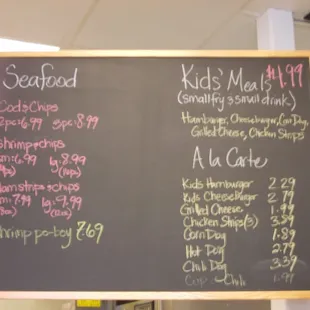 Seafood
Cod & Chips
2pc: 6.99 3pc: 8.99
shrimp & chips
sm: 6.99 lg: 8.99
Clam strips & chips
sm: 7.99 lg: 9.99
shrimp po-boy 7.69
Kids' Meals $1.99
(small fry & small drink)
Hamburger, Cheeseburger, Corn Dog,
Grilled Cheese, Chicken Strips
A la Carte
Kids Hamburger 2.29
Kids Cheeseburger 2.79
Grilled Cheese
Chicken Strips (3) 3.59
Corn Dog 1.89
Hot Dog 2.79
Chili Dog 3.39
Cup Chili 1.99